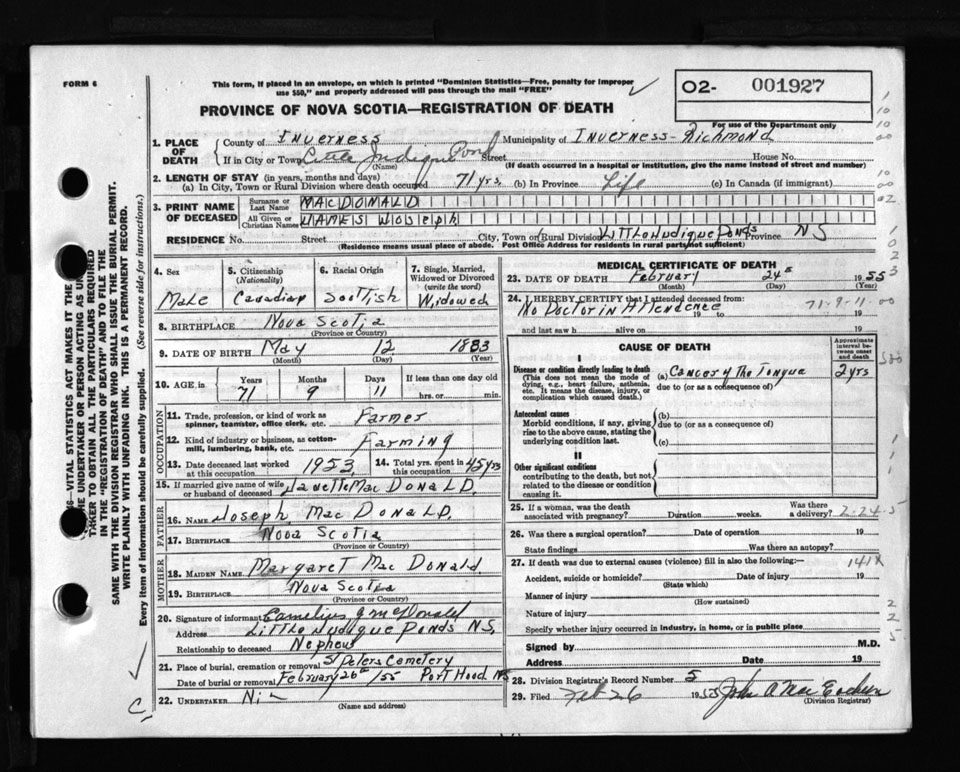 FORM 6
This form, if placed in an envelope, on which is printed "Dominion Statistics—Free, penalty for improper
use $50," and properly addressed will pass through the mail "FREE"
O2- 001927
For use of the Department only
PROVINCE OF NOVA SCOTIA—REGISTRATION OF DEATH
1. PLACE OF DEATH
County of Inverness Municipality of Inverness-Richmond
If in City or Town Little Judique Pond Street House No.
(Name) (If death occurred in a hospital or institution, give the name instead of street and number)
2. LENGTH OF STAY (in years, months and days)
(a) In City, Town or Rural Division where death occurred 71 yrs. (b) In Province Life (c) In Canada (if immigrant)
3. PRINT NAME OF DECEASED
Surname or Last Name MACDONALD
All Given or Christian Names JAMES JOSEPH
RESIDENCE No. Street City, Town or Rural Division Little Judique Ponds Province NS
(Residence means usual place of abode. Post Office Address for residents in rural parts not sufficient)
4. Sex
Male
5. Citizenship
(Nationality)
Canadian
6. Racial Origin
Scottish
7. Single, Married,
Widowed or Divorced
(write the word)
Widowed
8. BIRTHPLACE Nova Scotia
(Province or Country)
9. DATE OF BIRTH May 12 1883
(Month) (Day) (Year)
10. AGE, in Years Months Days If less than one day old
71 9 11 hrs. or min.
OCCUPATION
11. Trade, profession, or kind of work as
spinner, teamster, office clerk, etc. Farmer
12. Kind of industry or business, as cotton-
mill, lumbering, bank, etc. Farming
13. Date deceased last worked
at this occupation 1953 14. Total yrs. spent in
this occupation 45 yrs
15. If married give name of wife
or husband of deceased Janette Mac Donald.
FATHER
16. NAME Joseph. Mac Donald.
17. BIRTHPLACE Nova Scotia
(Province or Country)
MOTHER
18. MAIDEN NAME Margaret Mac Donald
19. BIRTHPLACE Nova Scotia
(Province or Country)
20. Signature of informant
Address Little Judique Ponds NS.
Relationship to deceased Nephew
21. Place of burial, cremation or removal St Peters Cemetery
Date of burial or removal February 26 /55 Port Hood NS
22. UNDERTAKER Nil
(Name and address)
MEDICAL CERTIFICATE OF DEATH
23. DATE OF DEATH February 24 1955
(Month) (Day)
24. I HEREBY CERTIFY that I attended deceased from:
No Doctor in Attendence 19 to 19
71-9-11
and last saw h alive on 19
CAUSE OF DEATH
Approximate interval between onset and death
I
Disease or condition directly leading to death
(This does not mean the mode of
dying, e.g., heart failure, asthenia,
etc. It means the disease, injury, or
complication which caused death.)
(a) Cancer of the Tongue 2 yrs
due to (or as a consequence of)
Antecedent causes
Morbid conditions, if any, giving
rise to the above cause, stating the
underlying condition last.
(b)
due to (or as a consequence of)
(c)
II
Other significant conditions
contributing to the death, but not
related to the disease or condition
causing it.
25. If a woman, was the death
associated with pregnancy? Duration weeks. Was there
a delivery? 2-24-5
26. Was there a surgical operation? Date of operation 19
State findings Was there an autopsy?
27. If death was due to external causes (violence) fill in also the following:— 141X
Accident, suicide or homicide? Date of injury 19
(State which)
Manner of injury
(How sustained)
Nature of injury
Specify whether injury occurred in industry, in home, or in public place
Signed by M.D.
Address Date 19
28. Division Registrar's Record Number 5
29. Filed Feb 26 1955 John A Mac Eachern
(Division Registrar)